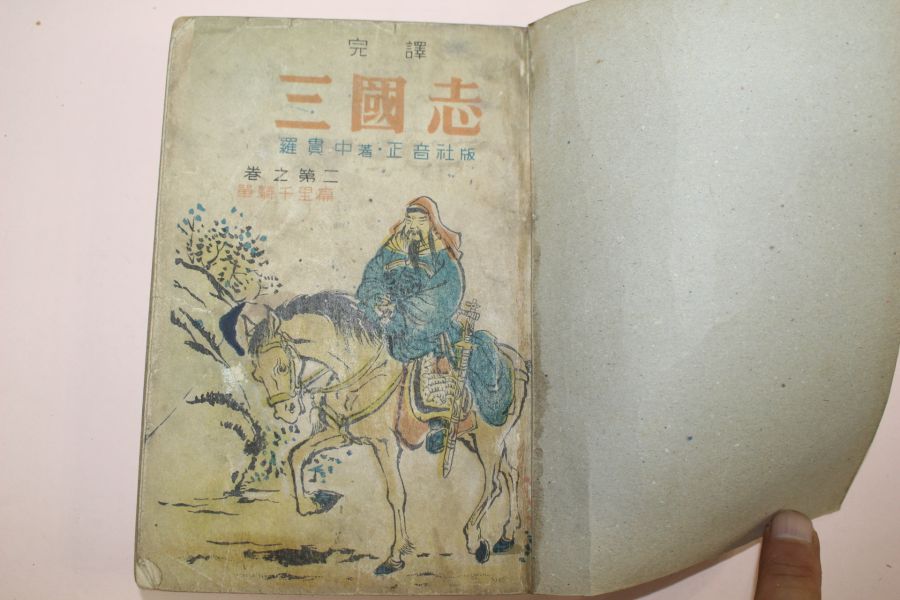 完譯
三國志
羅貫中著·正音社版
卷之第二
單騎千里篇